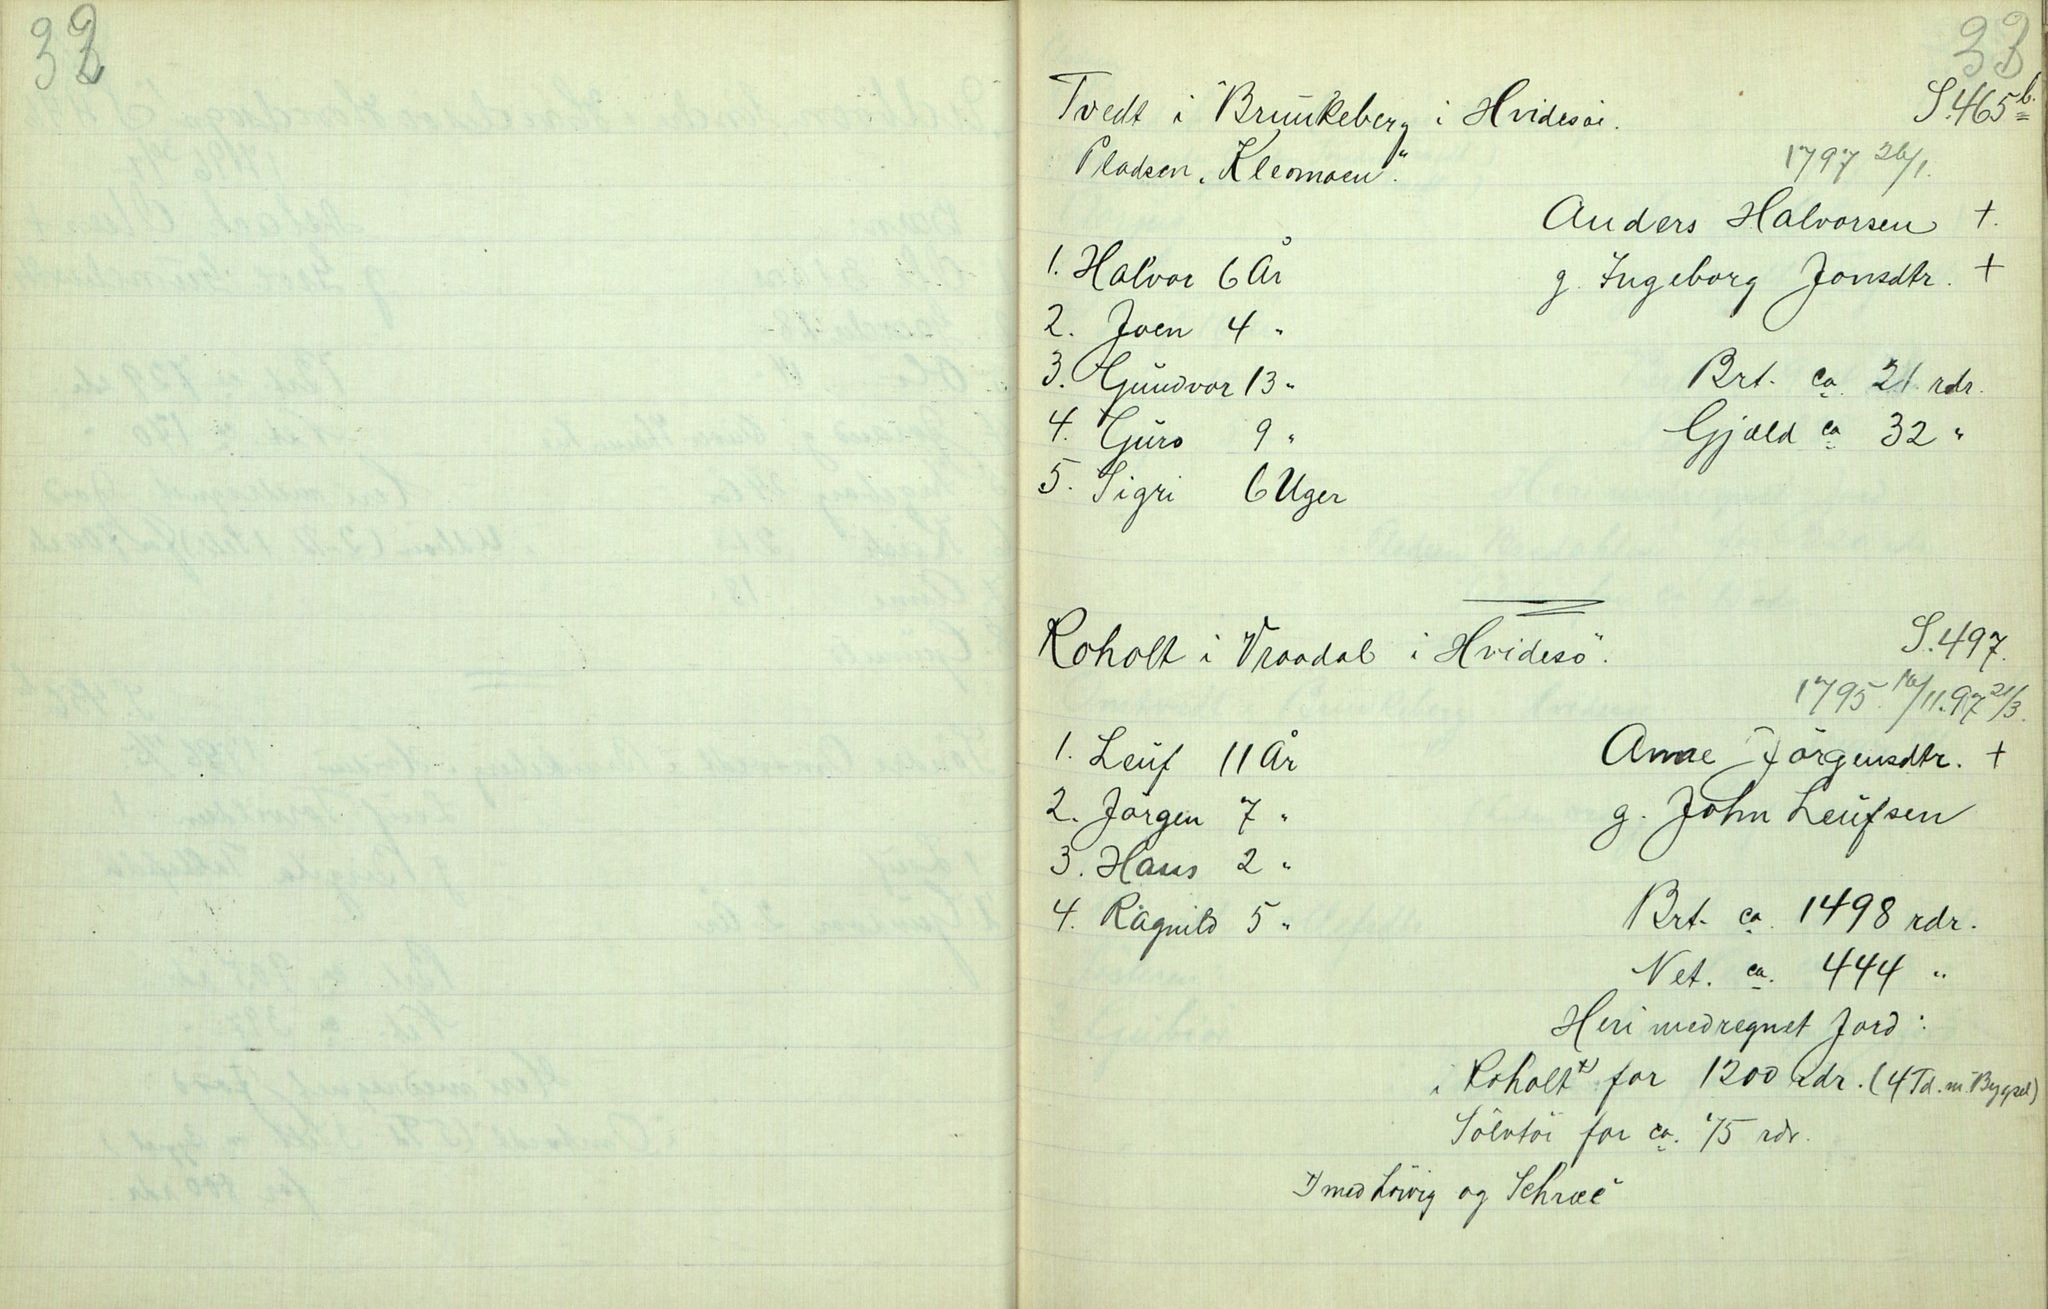 32
33
Tvedt i Brunkeberg i Hvidesøi. S. 465 b.
Pladsen „Kleomoen". 1797 26/1.
Anders Halvorsen +.
1. Halvor 6 År g. Ingeborg Jonsdtr. +
2. Joen 4 "
3. Gundvor 13 " Brt. ca. 21 rdr.
4. Guro 9 " Gjæld ca 32 "
5. Sigri 6 Uger
Roholt i Vraadal i Hvidesö. S. 497.
1795 16/11. 97 21/3.
1. Leuf 11 År Anne Jörgensdtr. +
2. Jörgen 7 " g. John Leufsen
3. Hans 2 "
4. Ragnild 5 " Brt. ca. 1498 rdr.
Net. ca. 444 "
Heri medregnet Jord:
i Roholt x) for 1200 rdr. (4 Td. m. Bygsel)
Sölvtöi for ca. 75 rdr.
x) med Löivig og